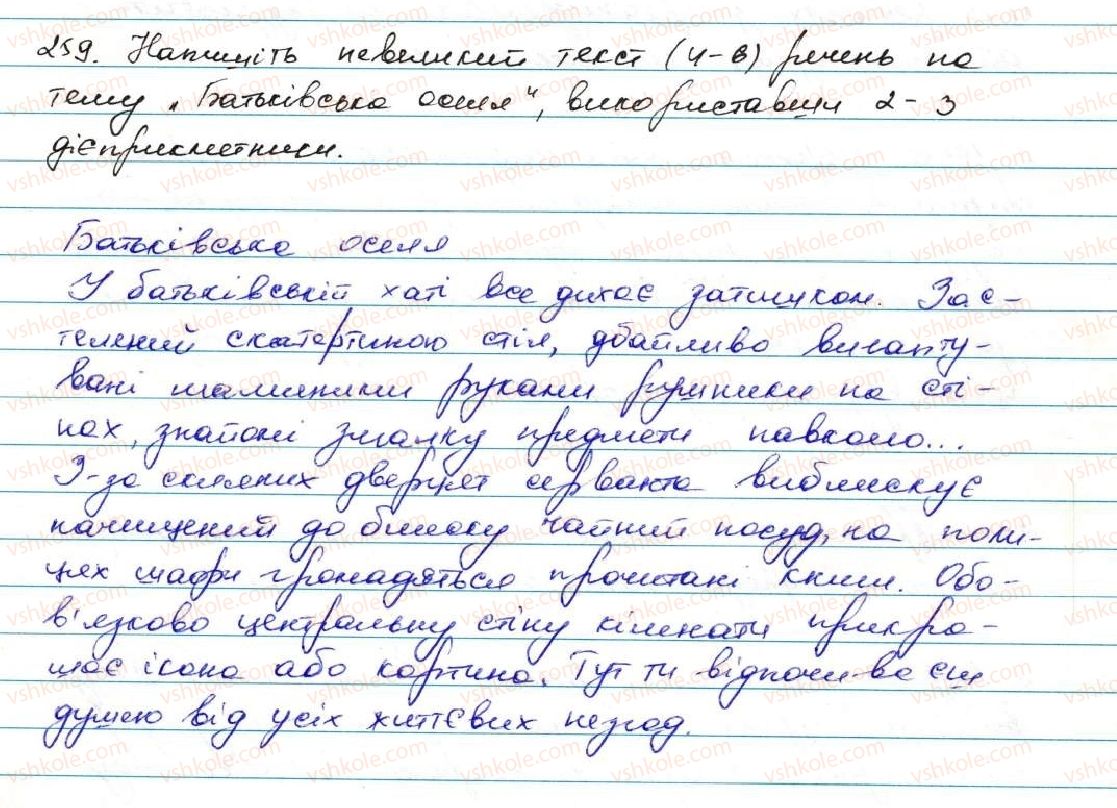 259. Напишіть невеликий текст (4-6) речень на
тему „Батьківська оселя", використавши 2-3
дієприкметники.
Батьківська оселя
У батьківській хаті все дихає затишком. Зас-
телений скатертиною стіл, дбайливо вигапту-
вані маминими руками рушники на сті-
нах, знайомі змалку предмети навколо...
З-за скляних дверцят серванта виблискує
начищений до блиску чайний посуд, на поли-
цях шафи громадяться прочитані книги. Обо-
в'язково центральну стіну кімнати прикра-
шає ікона або картина. Тут ти відпочиваєш
душею від усіх життєвих незгод.